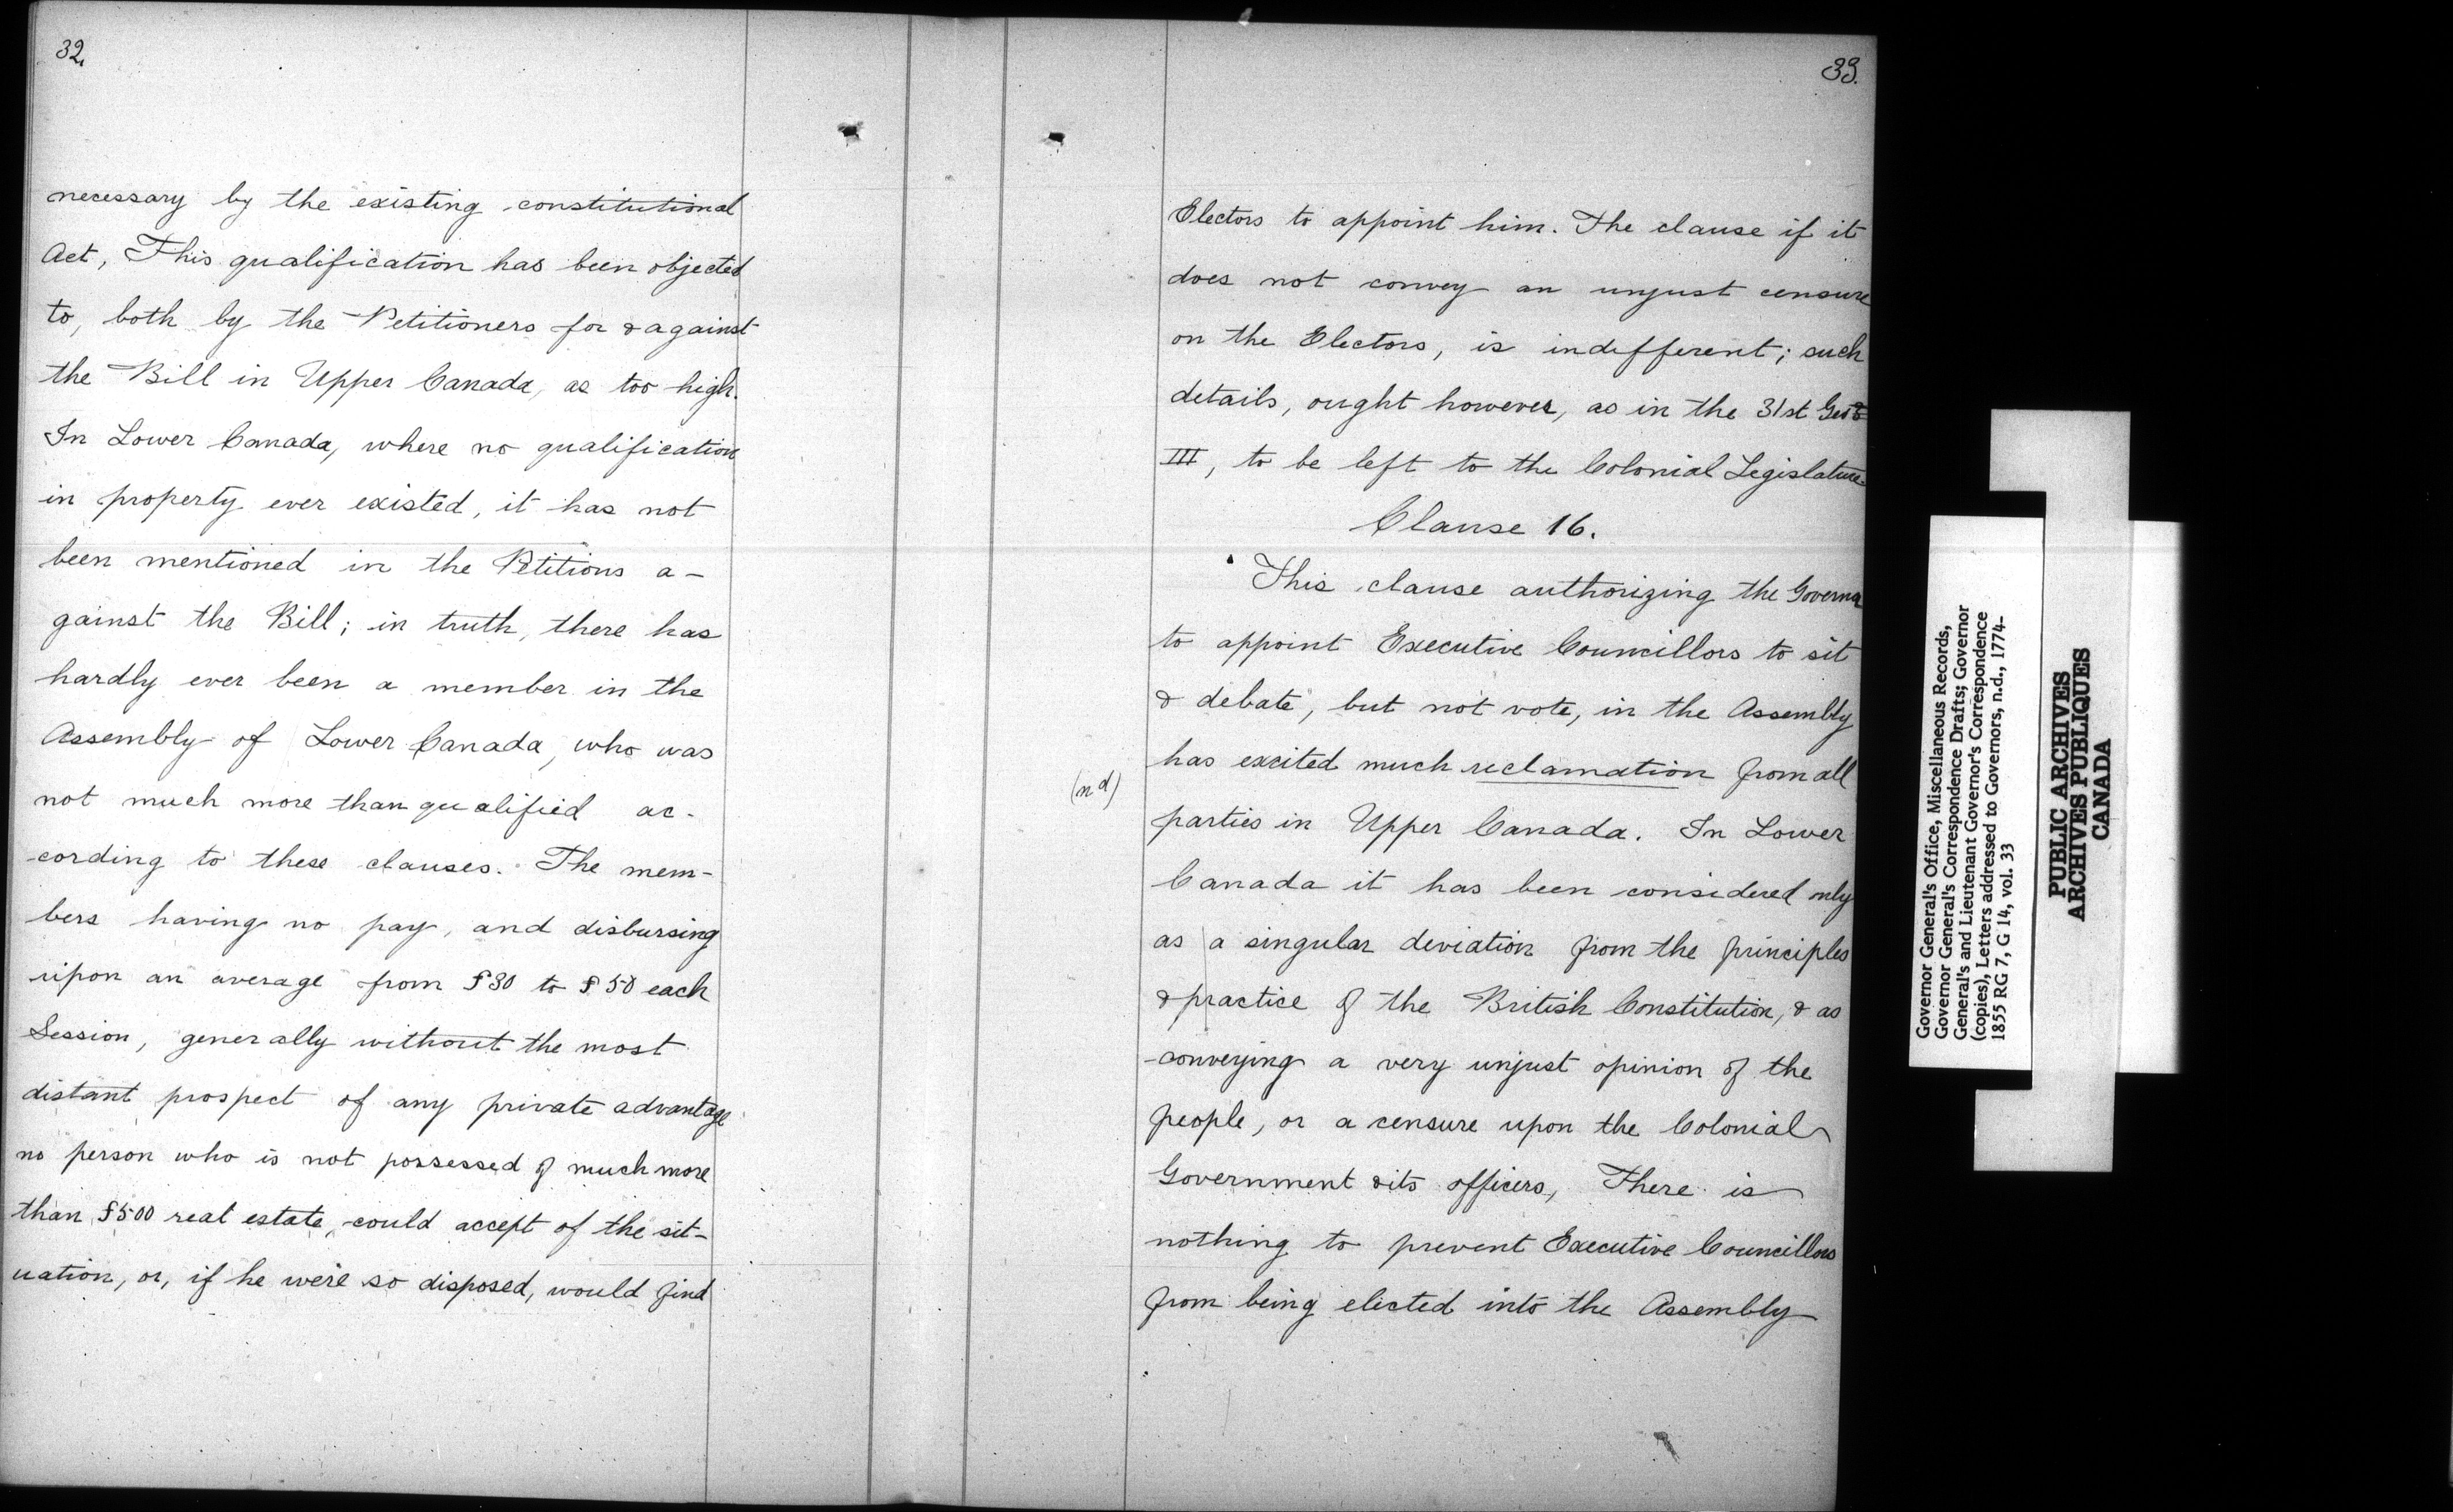 32.
necessary by the existing constitutional
Act, This qualification has been objected
to, both by the Petitioners for & against
the Bill in Upper Canada, as too high.
In Lower Canada, where no qualification
in property ever existed, it has not
been mentioned in the Petitions a-
gainst the Bill; in truth, there has
hardly ever been a member in the
Assembly of Lower Canada, who was
not much more than qualified ac-
cording to these clauses. The mem-
bers having no pay, and disbursing
upon an average from £30 to £50 each
Session, generally without the most
distant prospect of any private advantage
no person who is not possessed of much more
than £500 real estate, could accept of the sit-
uation, or, if he were so disposed, would find
33.
Electors to appoint him. The clause if it
does not convey an unjust censure
on the Electors, is indifferent; such
details, ought however, as in the 31st Geo
III, to be left to the Colonial Legislature.
Clause 16.
This clause authorizing the Governor
to appoint Executive Councillors to sit
& debate, but not vote, in the Assembly
has excited much reclamation from all
(nd)
parties in Upper Canada. In Lower
Canada it has been considered only
as a singular deviation from the principles
& practice of the British Constitution, & as
conveying a very unjust opinion of the
people, or a censure upon the Colonial
Government & its officers, There is
nothing to prevent Executive Councillors
from being elected into the Assembly
Governor General's Office, Miscellaneous Records,
Governor General's Correspondence Drafts; Governor
General's and Lieutenant Governor's Correspondence
(copies), Letters addressed to Governors, n.d., 1774-
1855 RG 7, G 14, vol. 33
PUBLIC ARCHIVES
ARCHIVES PUBLIQUES
CANADA